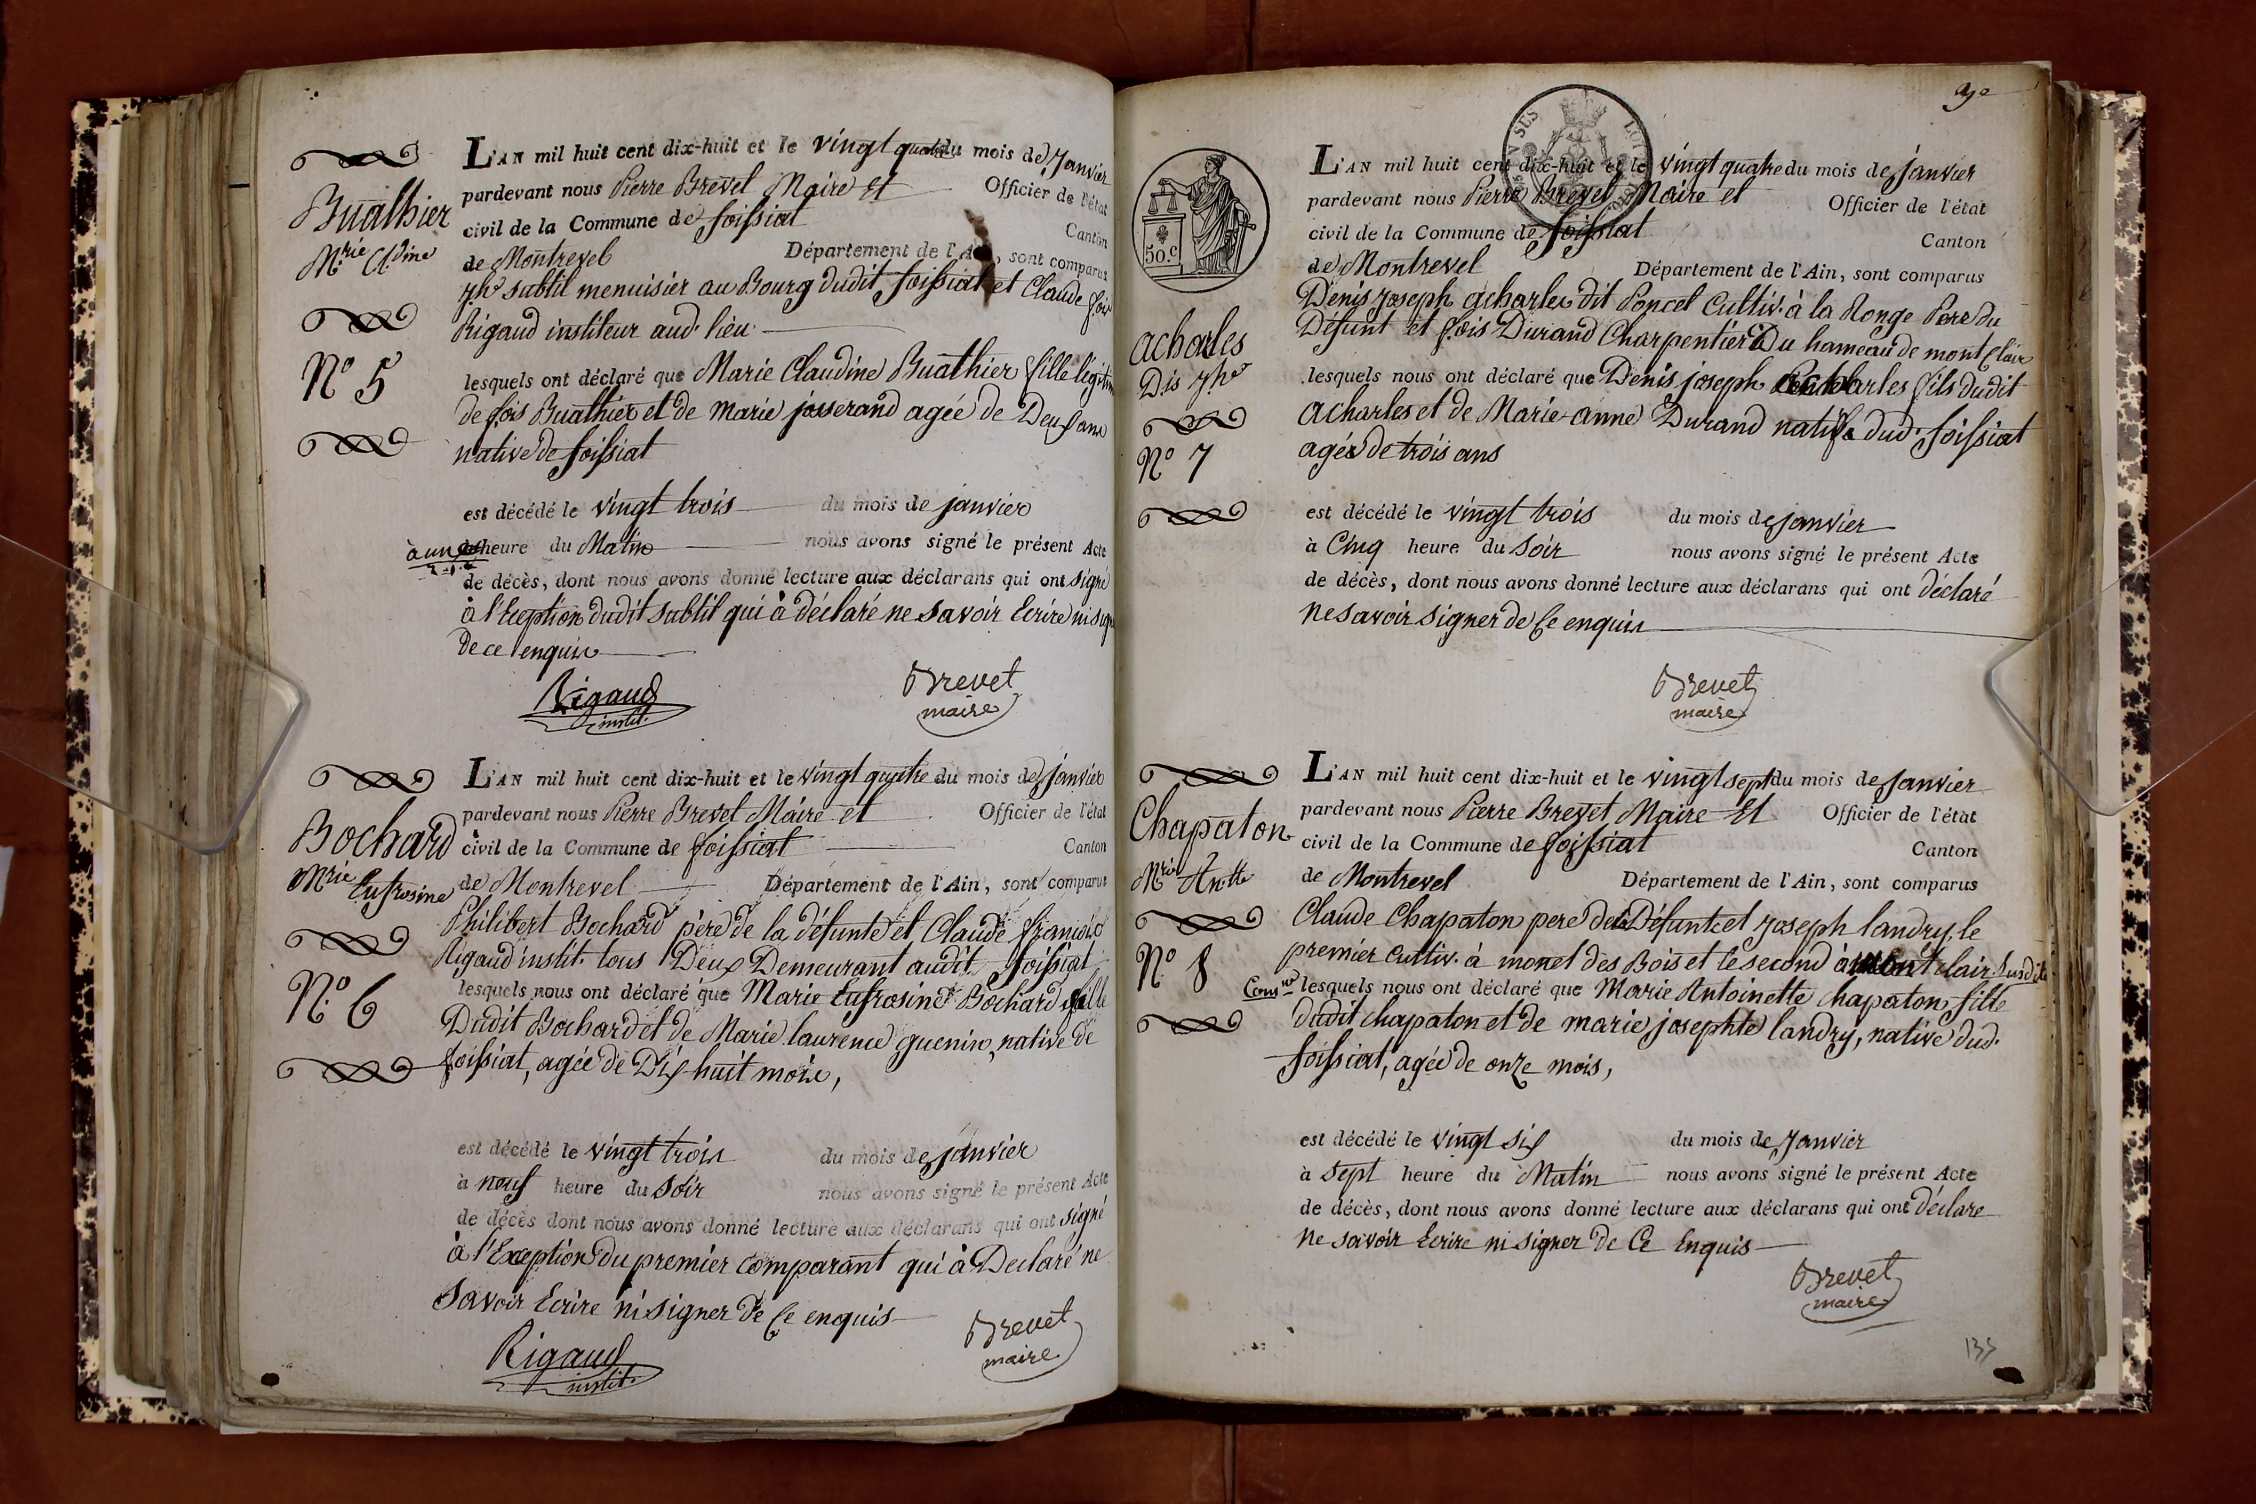 Buathier
Mrie Cldine
No 5
L'AN mil huit cent dix-huit et le vingt quatre du mois de Janvier
pardevant nous Pierre Brevet Maire et Officier de l'état
civil de la Commune de foissiat Canton
de Montrevel Département de l'Ain, sont comparus
Jh Subtil menuisier au Bourg dudit foissiat et Claude fois
Rigaud instituteur aud. lieu
lesquels ont déclaré que Marie Claudine Buathier fille légitime
de fois Buathier et de marie josserand agée de Deux ans
native de foissiat
est décédé le vingt trois du mois de janvier
à une heure du Matin nous avons signé le présent Acte
de décès, dont nous avons donné lecture aux déclarans qui ont signé
à l'Exeption dudit subtil qui à déclaré ne savoir Ecrire ni signer
de ce enquis
Rigaud
instit.
Brevet
maire
Bochard
Mrie Eufrosine
No 6
L'AN mil huit cent dix-huit et le vingt quatre du mois de janvier
pardevant nous Pierre Brevet Maire et Officier de l'état
civil de la Commune de foissiat Canton
de Montrevel Département de l'Ain, sont comparus
Philibert Bochard père de la défunte et Claude françois
Rigaud instit. tous Deux Demeurant audit foissiat
lesquels nous ont déclaré que Marie Eufrosine Bochard fille
Dudit Bochard et de Marie laurence guenin, native de
foissiat, agée de Dix huit mois,
est décédé le vingt trois du mois de janvier
à neuf heure du Soir nous avons signé le présent Acte
de décès dont nous avons donné lecture aux déclarans qui ont signé
à l'Exception du premier comparant qui à Declaré ne
Savoir Ecrire ni signer de Ce enquis
Rigaud
instit.
Brevet
maire
50.c
acharles
Dis Jh
No 7
L'AN mil huit cent dix-huit et le vingt quatre du mois de janvier
pardevant nous Pierre Brevet Maire et Officier de l'état
civil de la Commune de foissiat Canton
de Montrevel Département de l'Ain, sont comparus
Denis Joseph acharles dit Poncet Cultiv. à la Ronge Pere du
Défunt et fois Durand Charpentier Du hameau de mont Clair
lesquels nous ont déclaré que Denis joseph acharles fils dudit
acharles et de Marie-anne Durand natif dud. foissiat
agée de trois ans
est décédé le vingt trois du mois de janvier
à Cinq heure du Soir nous avons signé le présent Acte
de décès, dont nous avons donné lecture aux déclarans qui ont déclaré
ne savoir signer de Ce enquis
Brevet
maire
Chapaton
Mrie Antte
No 8
L'AN mil huit cent dix-huit et le vingt sept du mois de Janvier
pardevant nous Pierre Brevet Maire Et Officier de l'état
civil de la Commune de foissiat Canton
de Montrevel Département de l'Ain, sont comparus
Claude Chapaton pere de la Défunte et Joseph landry, le
premier cultiv. à monet des Bois et le second à mont clair Susdite
Comne lesquels nous ont déclaré que Marie Antoinette Chapaton fille
dudit chapaton et de marie josephte landry, native dud.
foissiat, agée de onze mois,
est décédé le vingt six du mois de Janvier
à sept heure du Matin nous avons signé le présent Acte
de décès, dont nous avons donné lecture aux déclarans qui ont déclare
ne savoir Ecrire ni signer de Ce Enquis
Brevet
maire